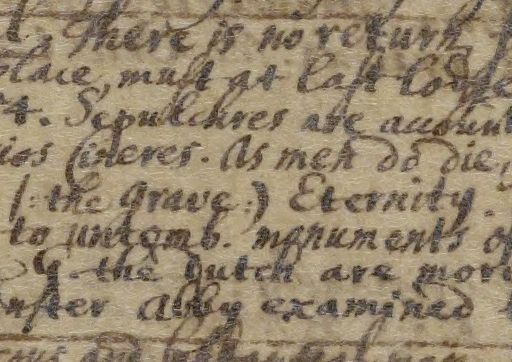 there is no return
place, must at last lodge
74. Sepulchres are account
. As men do die,
/: the grave:) Eternity.
to untomb. monuments of
the dutch are more
onster Abby examined